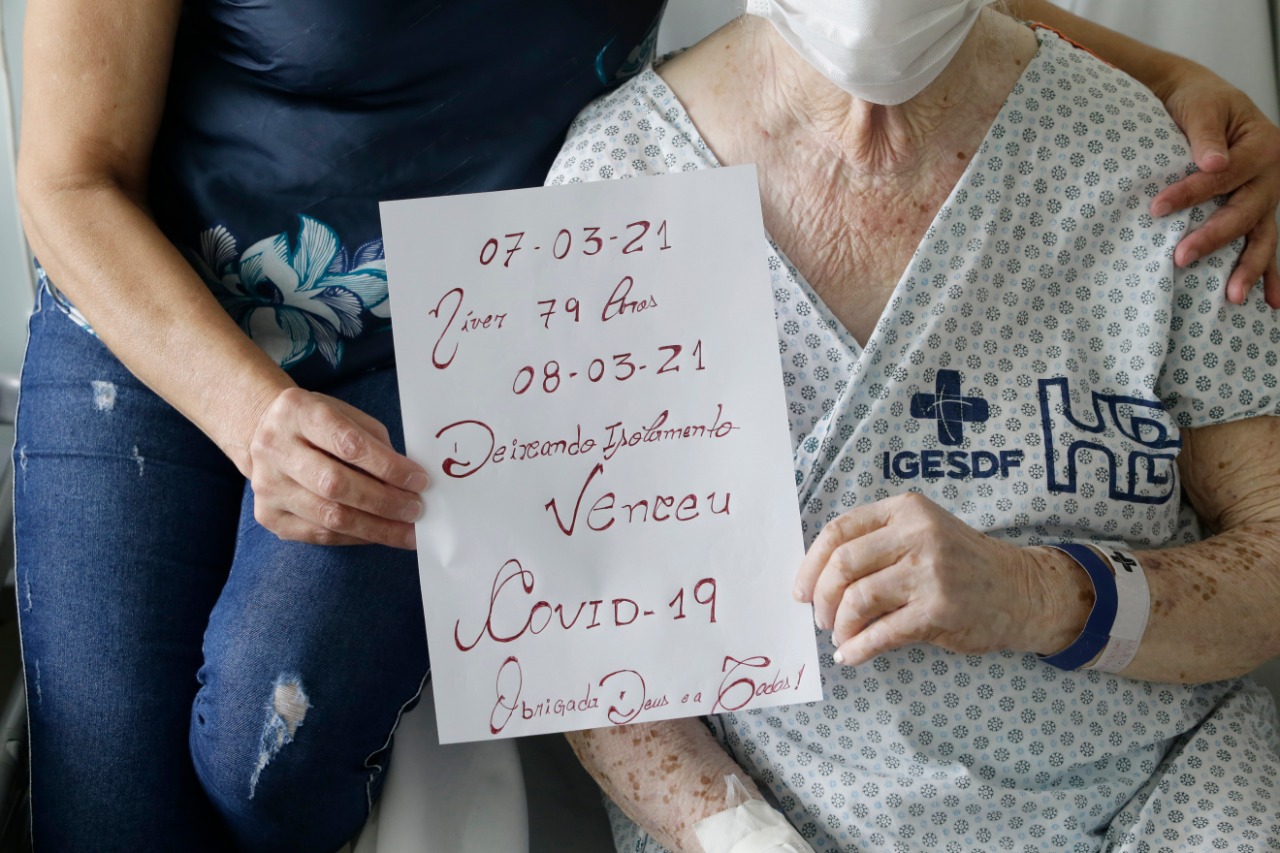 07-03-21
Niver 79 Anos
08-03-21
Deixando Isolamento
Venceu
COVID-19
Obrigada Deus e a Todas!
IGESDF